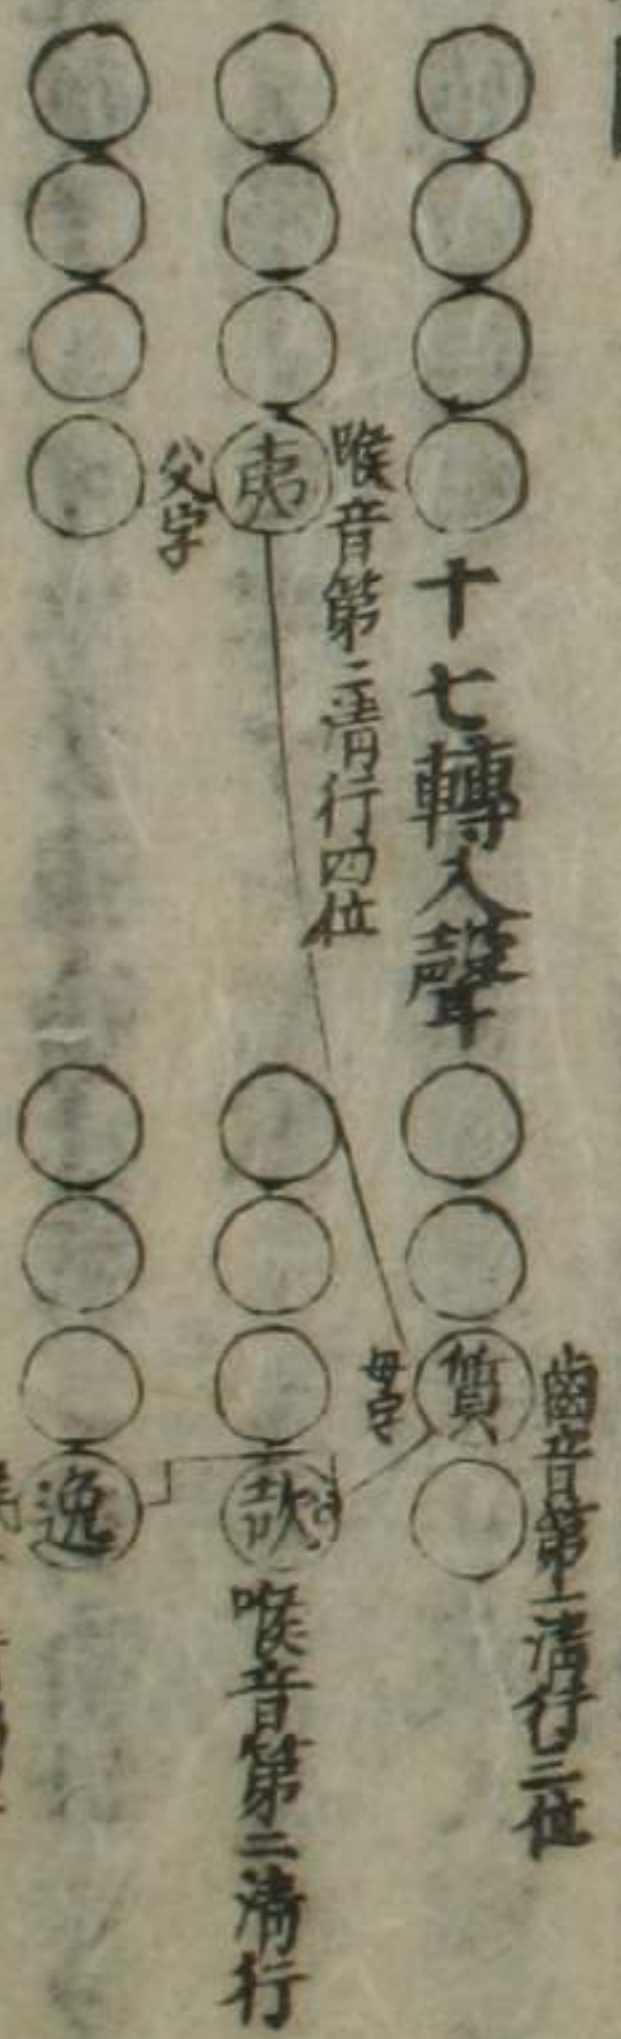 十七轉入聲
齒音第一清行三位
質
母字
喉音第二清行四位
夷
父字
欯
喉音第二清行
逸